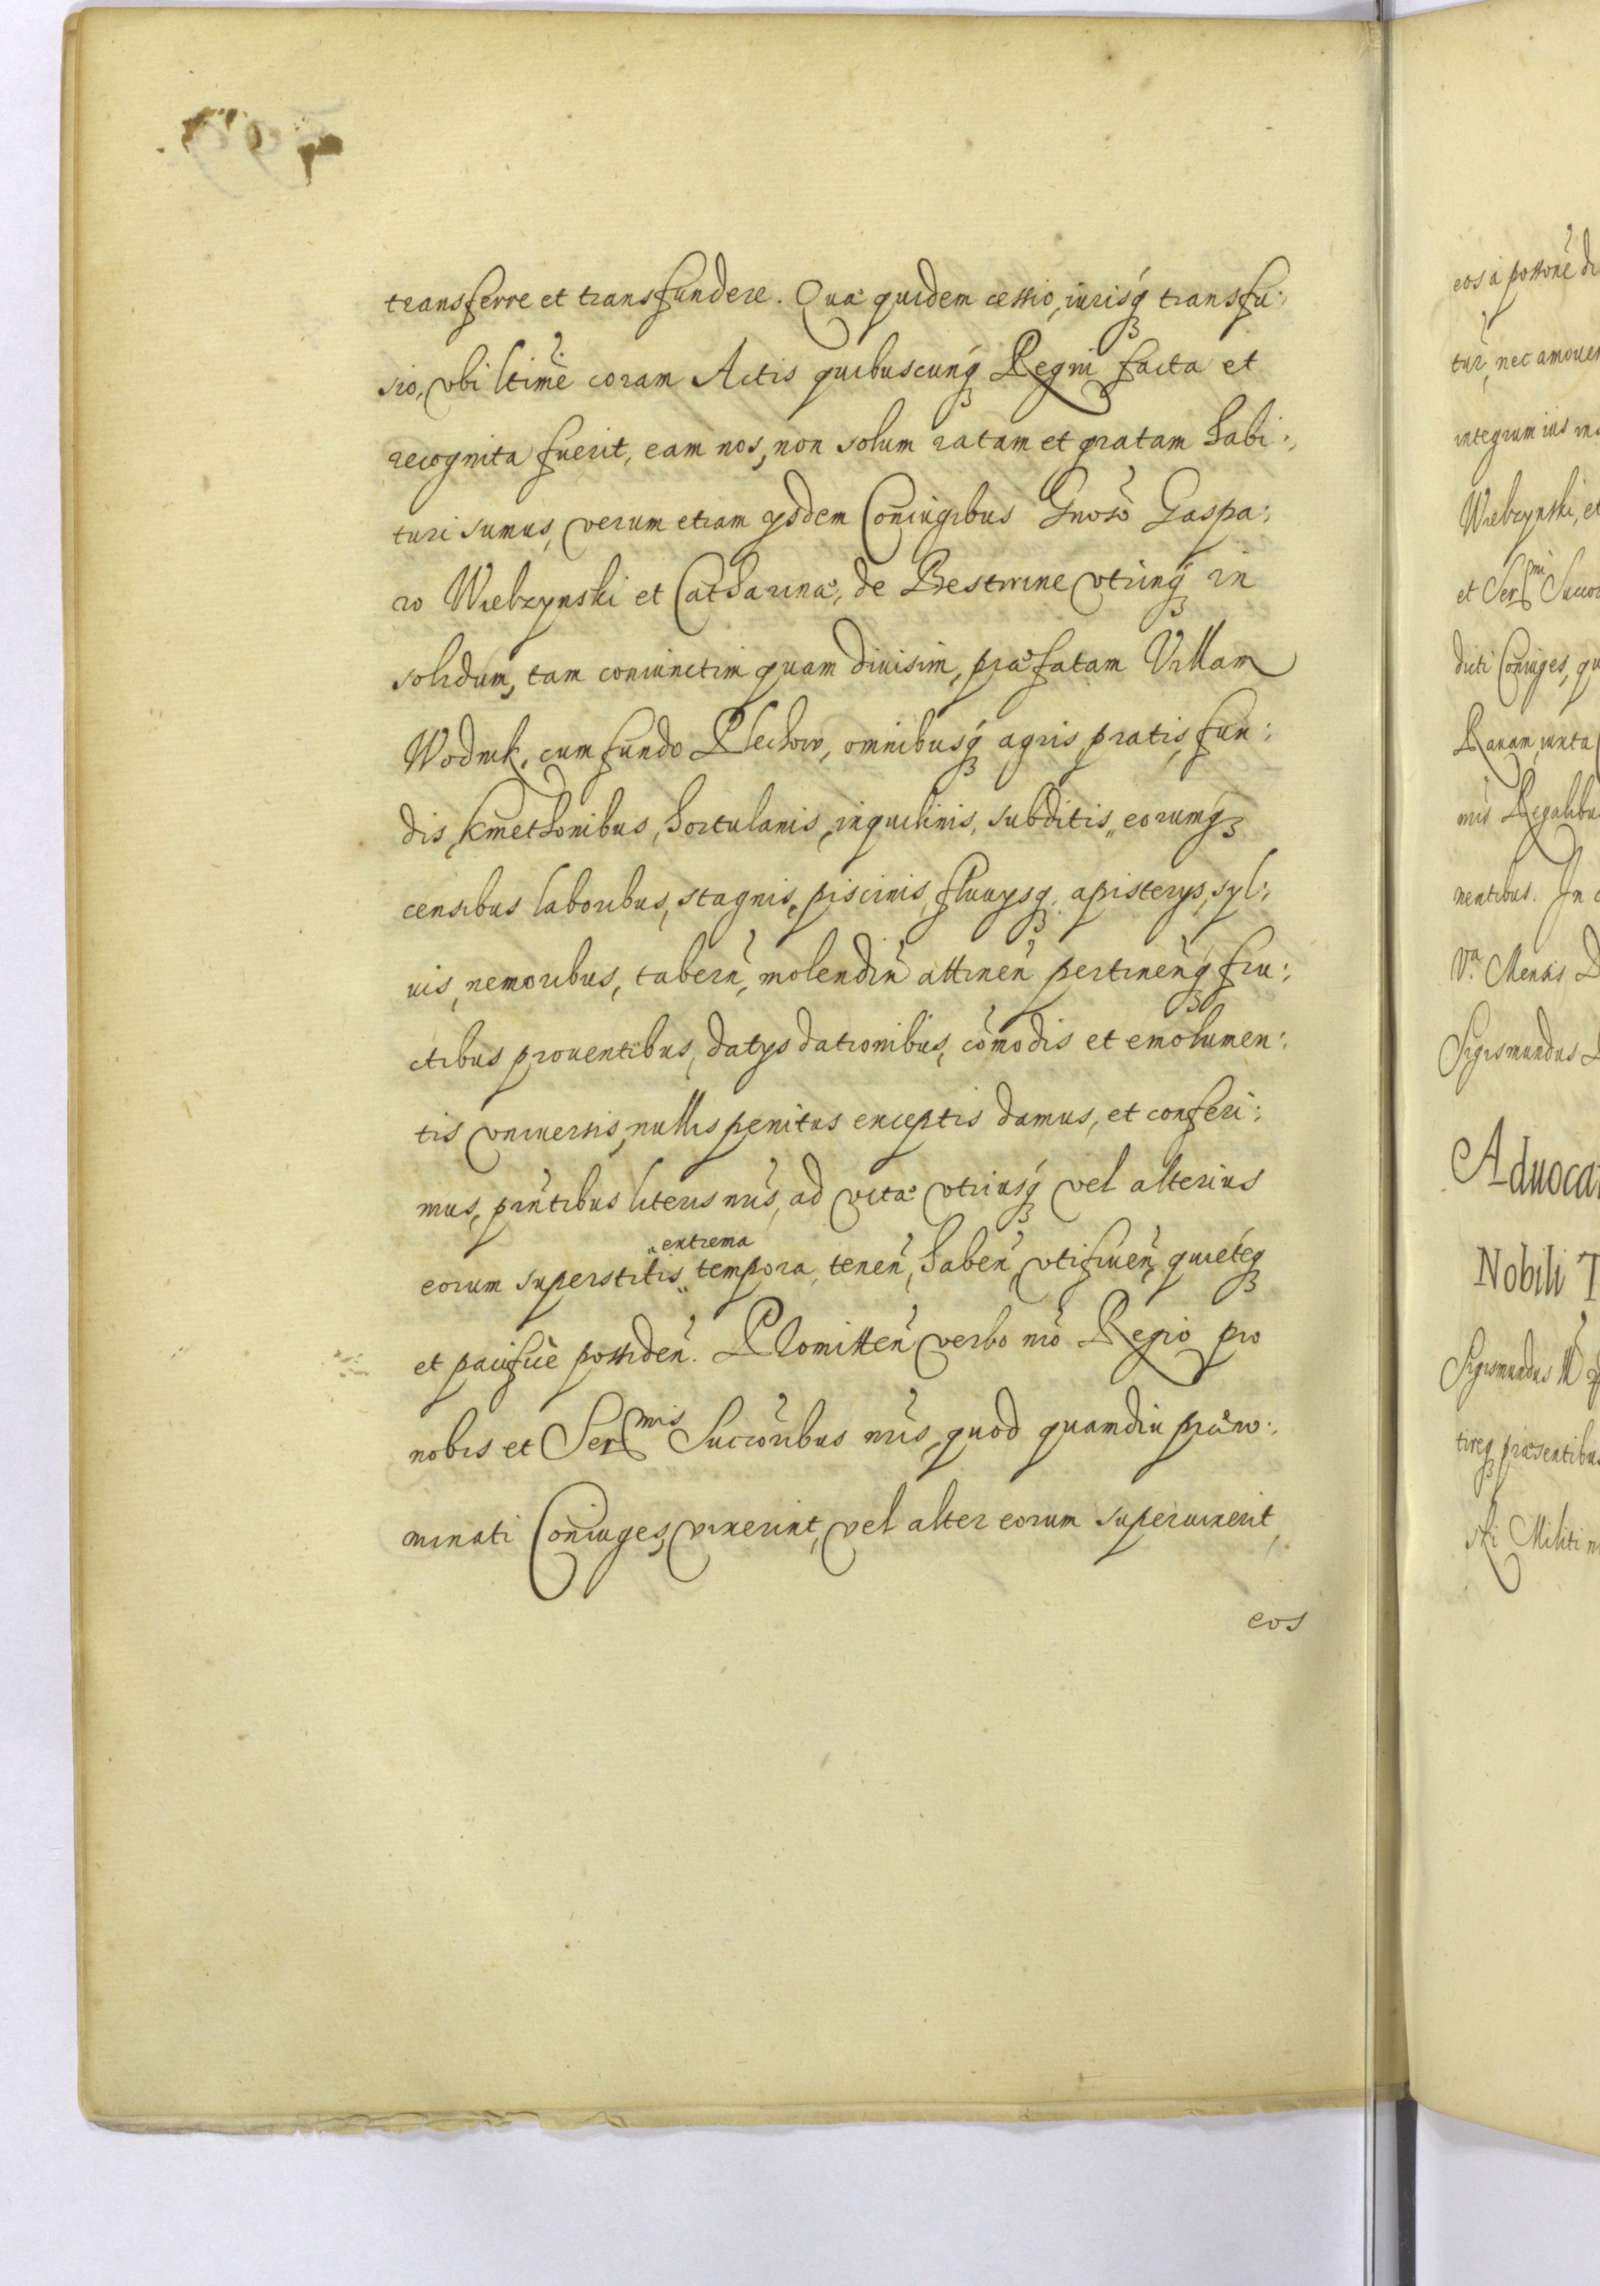 transferre et transfundere. Quæ quidem cessio, iurisq́ʒ transfu:
sio, vbi ltimẽ coram Actis quibuscunq́ʒ Regni facta et
recognita fuerit, eam nos, non solum ratam et gratam habi:
turi sumus, verum etiam ysdem Coniugibus Gnoso Gaspa:
ro Wiebzynski et Catharinæ, de Bestwine vtrinq́ʒ in
solidum, tam coniunctim quam diuisim, præfatam Villam
Wodnik, cum fundo Plechow, omnibusq́ʒ agris pratis, fun:
dis, kmethonibus, hortulanis, inquilinis, subditis, eorumq́ʒ
censibus laboribus, stagnis, piscinis, fluuysqʒ, apisterys, syl:
uis, nemoribus, tabern̄, molendin̄ attinen̄ pertinen̄q́ʒ fru:
ctibus prouentibus, datys dationibus, com̄odis et emolumen:
tis vniuersis, nullis penitus exceptis damus, et conferi:
mus, prn̄tibus literis nr̄is, ad vitæ vtriusq́ʒ vel alterius
extrema
eorum superstitis tempora, tenen̄, haben̄, vtifruen̄, quietéqʒ
et pacificè possiden̄. Promitten̄ verbo nr̄o Regio pro
nobis et Sermis Succōribus nr̄is, quod quamdiu præno:
minati Coniuges, vixerint, vel alter eorum superuixerit,
eos
eos à possonē
tur, nec amouen
integrum ius
Wiebzynski, et
et Sermi Succo
dicti Coniuges, qu
Rauam, iuxta
mis Regalibu
nentibus. In
Va. Mensis
Sigismundus
Aduoca
Nobili T
Sigismundus
tireqʒ præsentibus
ski Militi